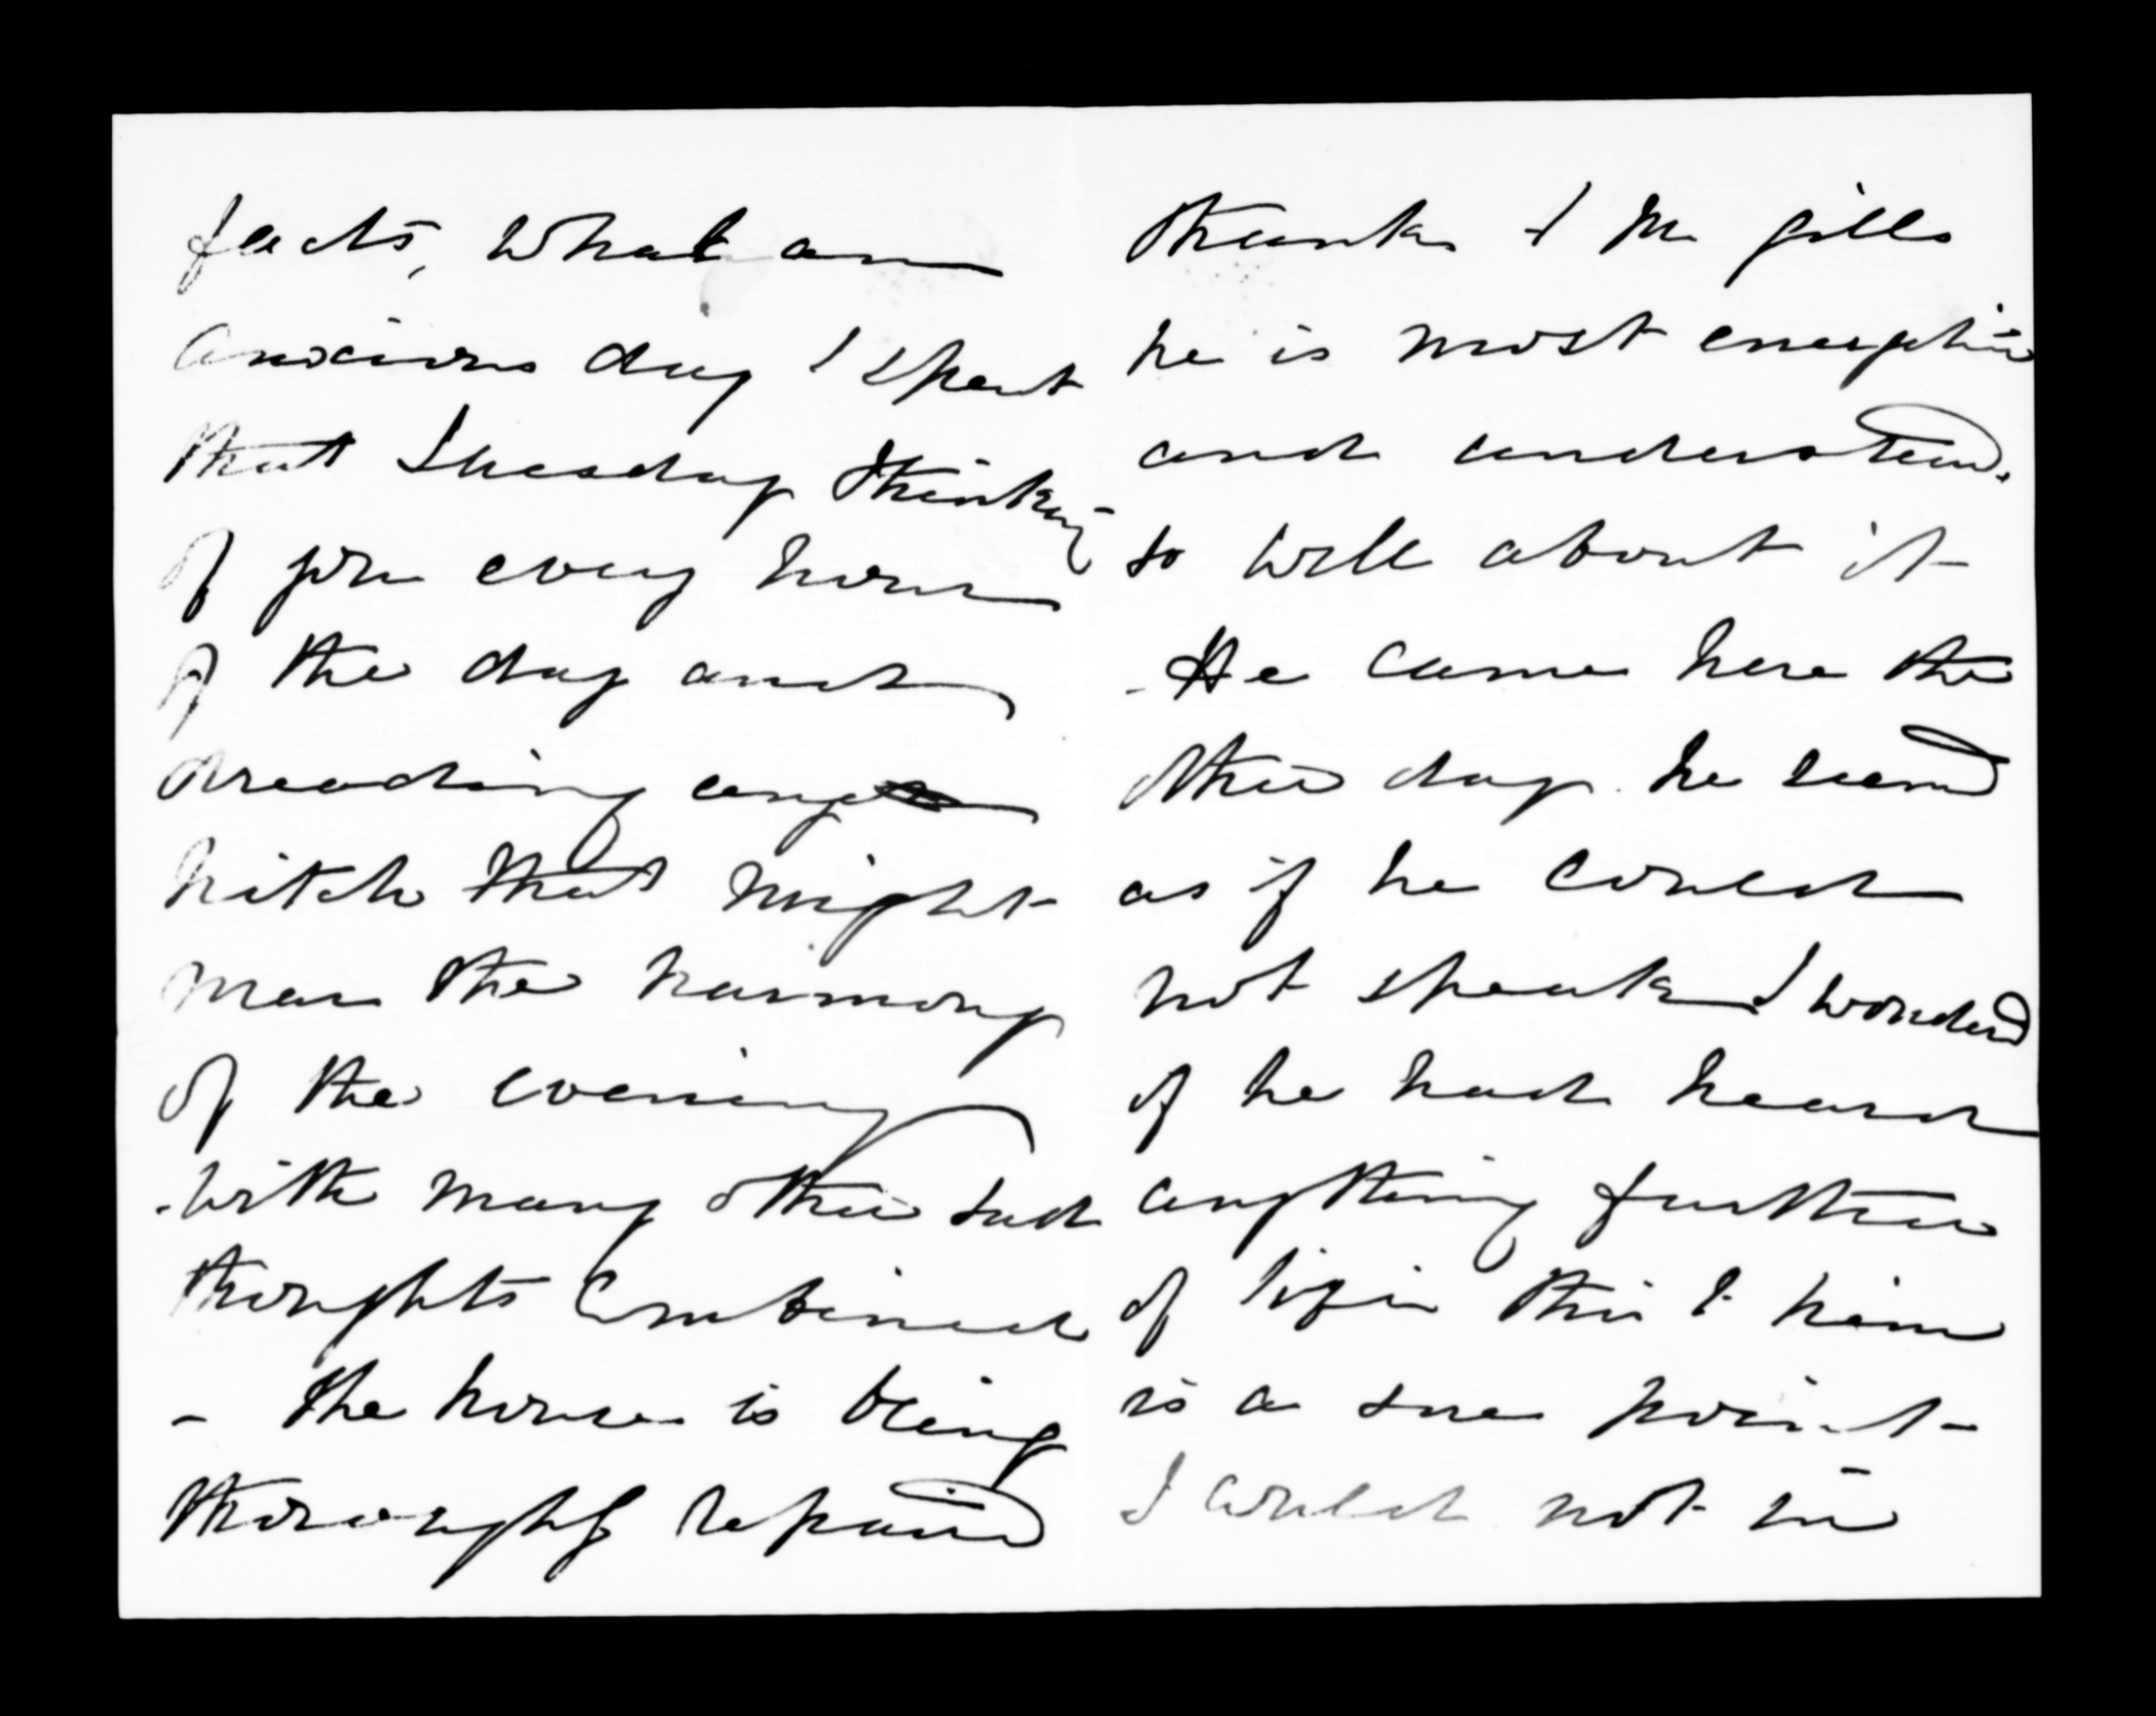 facts, What an
anxious day I spent
that Tuesday thinking
of you every hour
of the day and
dreading any
hitch that might
mar the harmony
of the evening
- with many other sad
thoughts Combined
- the house is being
thoroughly repaired
thanks to Mr Gills
he is most energetic
and understands
so well about it
- He came here the
other day. he seemed
as if he could
not speak I wondered
if he had heard
anything further
of this to him
is a sore point
I could not in